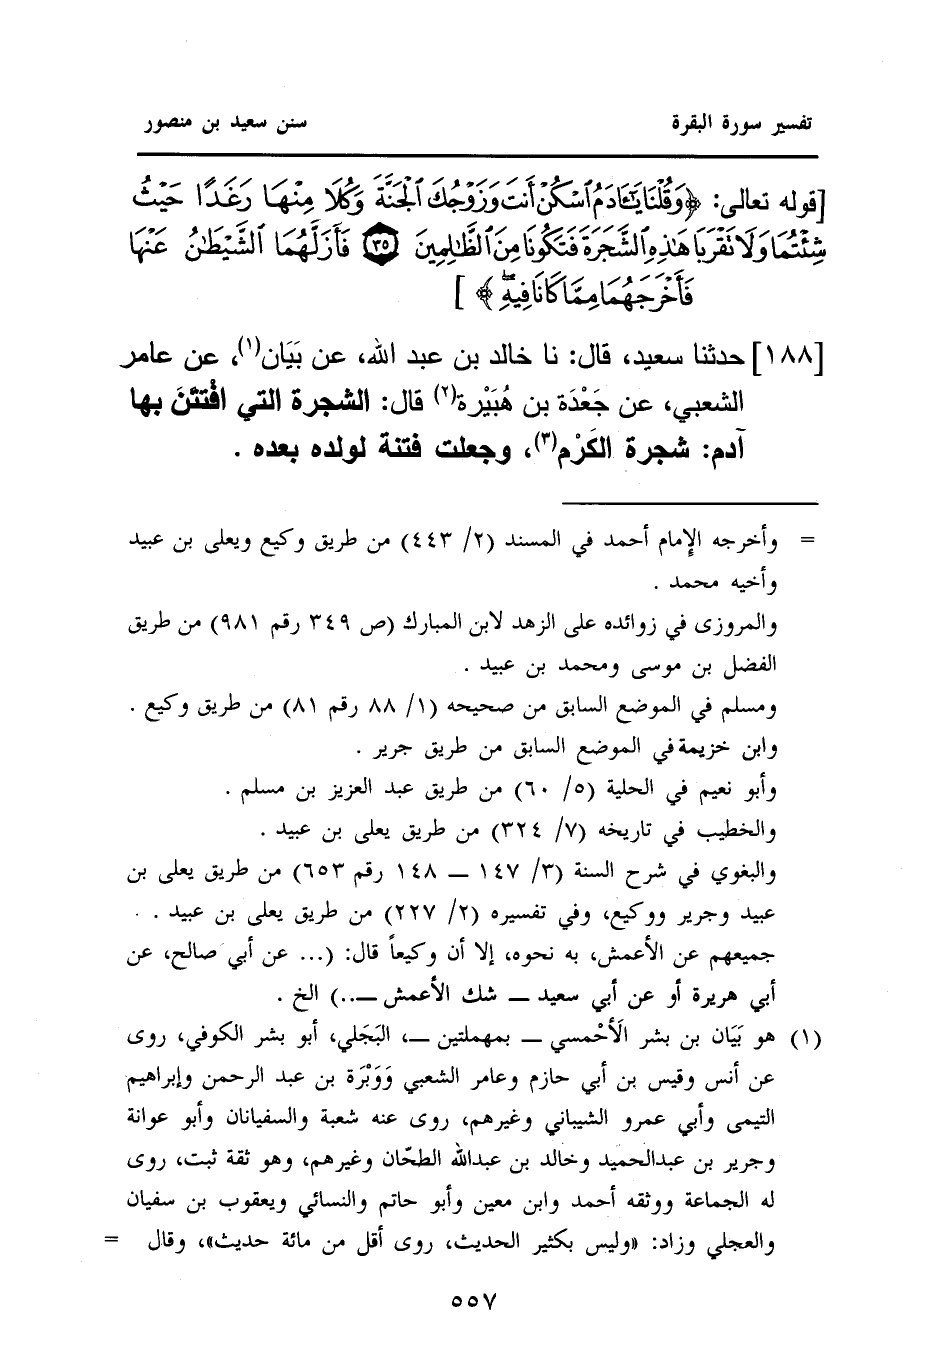 تفسير سورة البقرة سنن سعيد بن منصور
[قوله تعالى: ﴿وَقُلْنَا يَٰٓـَٔادَمُ ٱسْكُنْ أَنتَ وَزَوْجُكَ ٱلْجَنَّةَ وَكُلَا مِنْهَا رَغَدًا حَيْثُ
شِئْتُمَا وَلَا تَقْرَبَا هَٰذِهِ ٱلشَّجَرَةَ فَتَكُونَا مِنَ ٱلظَّٰلِمِينَ ٣٥ فَأَزَلَّهُمَا ٱلشَّيْطَٰنُ عَنْهَا
فَأَخْرَجَهُمَا مِمَّا كَانَا فِيهِ ۖ﴾ ]
[١٨٨] حدثنا سعيد، قال: نا خالد بن عبد الله، عن بَيَان(١)، عن عامر
الشعبي، عن جَعْدَة بن هُبَيْرة(٢) قال: الشجرة التي افْتتَنَ بها
آدم: شجرة الكَرْم(٣)، وجعلت فتنة لولده بعده .
= وأخرجه الإمام أحمد في المسند (٢/ ٤٤٣) من طريق وكيع ويعلى بن عبيد
وأخيه محمد .
والمروزى في زوائده على الزهد لابن المبارك (ص ٣٤٩ رقم ٩٨١) من طريق
الفضل بن موسى ومحمد بن عبيد .
ومسلم في الموضع السابق من صحيحه (١/ ٨٨ رقم ٨١) من طريق وكيع .
وابن خزيمة في الموضع السابق من طريق جرير .
وأبو نعيم في الحلية (٥/ ٦٠) من طريق عبد العزيز بن مسلم .
والخطيب في تاريخه (٧/ ٣٢٤) من طريق يعلى بن عبيد .
والبغوي في شرح السنة (٣/ ١٤٧ ــ ١٤٨ رقم ٦٥٣) من طريق يعلى بن
عبيد وجرير ووكيع، وفي تفسيره (٢/ ٢٢٧) من طريق يعلى بن عبيد .
جميعهم عن الأعمش، به نحوه، إلا أن وكيعاً قال: (... عن أبي صالح، عن
أبي هريرة أو عن أبي سعيد ــ شك الأعمش ــ..) الخ .
(١) هو بَيَان بن بشر الَأحْمسي ــ بمهملتين ــ، البَجَلي، أبو بشر الكوفي، روى
عن أنس وقيس بن أبي حازم وعامر الشعبي وَوَبْرَة بن عبد الرحمن وإبراهيم
التيمى وأبي عمرو الشيباني وغيرهم، روى عنه شعبة والسفيانان وأبو عوانة
وجرير بن عبدالحميد وخالد بن عبدالله الطحّان وغيرهم، وهو ثقة ثبت، روى
له الجماعة ووثقه أحمد وابن معين وأبو حاتم والنسائي ويعقوب بن سفيان
والعجلي وزاد: «وليس بكثير الحديث، روى أقل من مائة حديث»، وقال =
٥٥٧